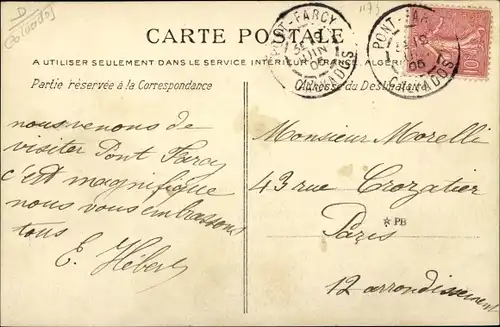 D
(Calvados)
1173
CARTE POSTALE
A UTILISER SEULEMENT DANS LE SERVICE INTÉRIEUR FRANCE, ALGÉRIE
Partie réservée à la Correspondance
Adresse du Destinataire
PONT-FARCY
JUIN
05
CALVADOS
PONT-FARCY
05
CALVADOS
10
nous venons de
visiter Pont Farcy
c'est magnifique
nous vous embrassons
tous
E. Hébert
Monsieur Morelli
43 rue Crozatier
Paris
12 arrondissement
PB